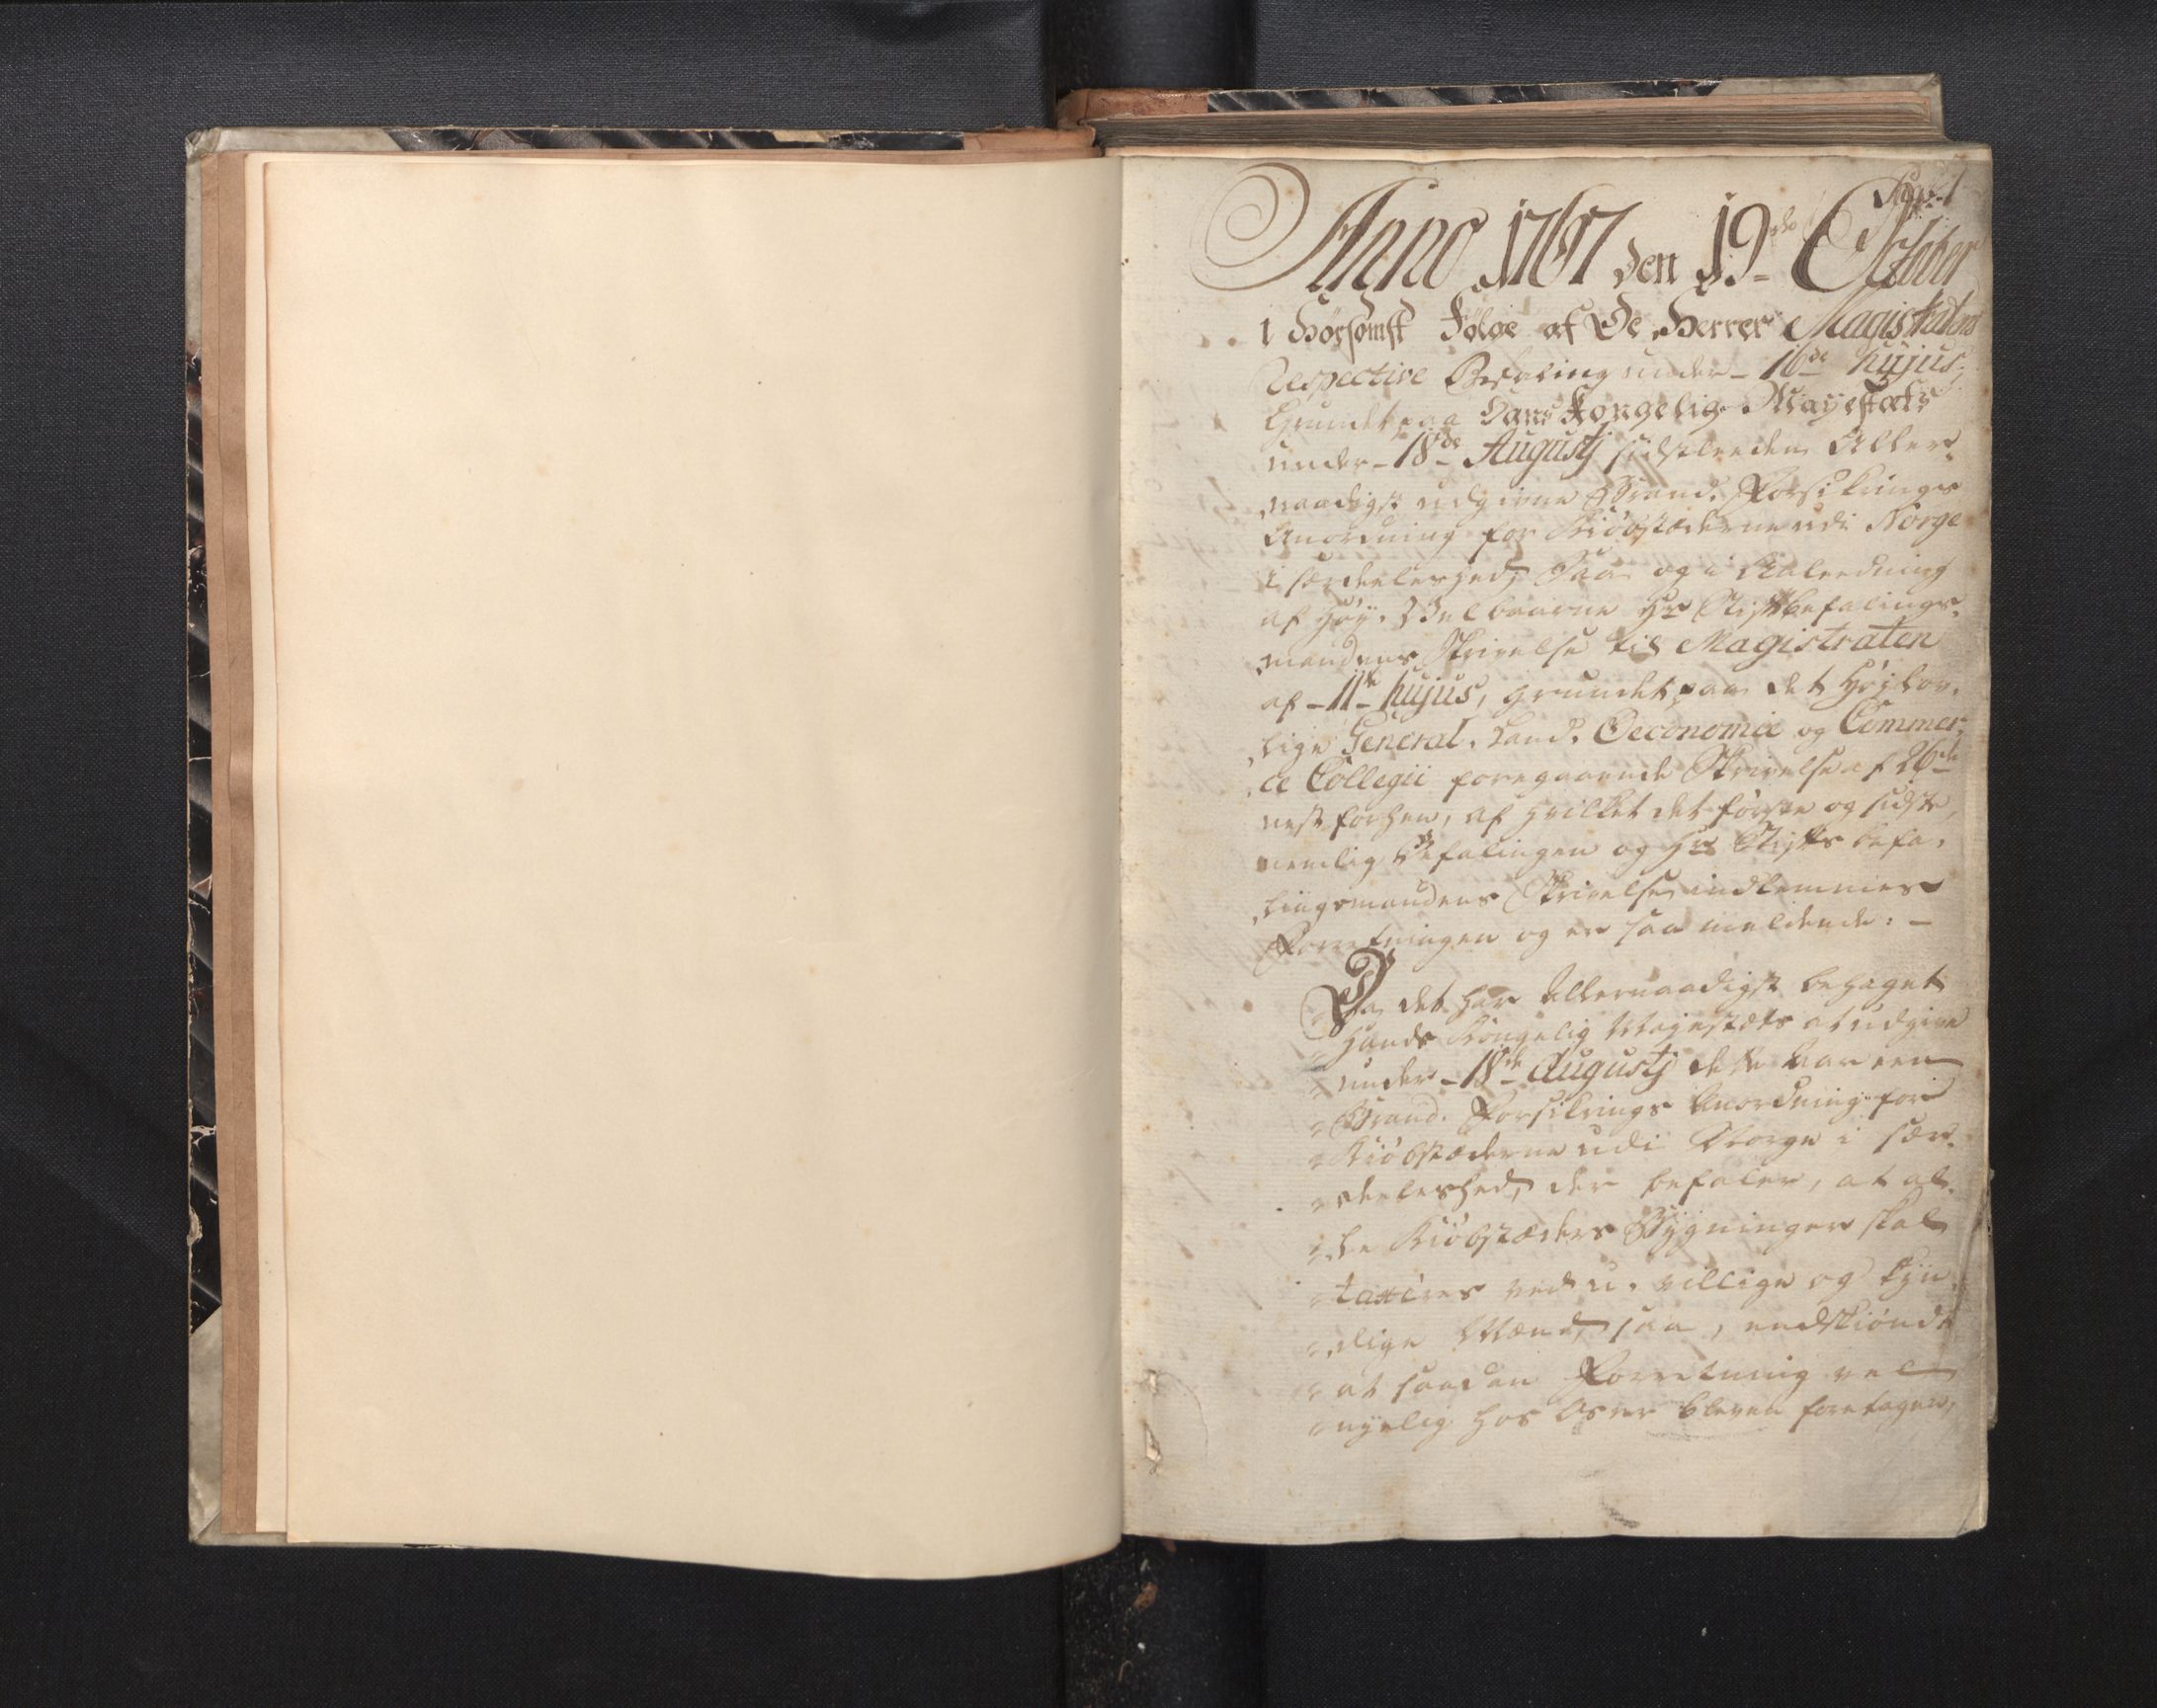 Anno 1767 den 19de October
i Hörsomst Følge af De Herrer Magistratens
Respective Befaling under 16de hujus,
Grundet paa Hans Kongelig Mayestæts
under 18de Augustj sidstleeden Aller-
naadigst udgivne Brand-Forsikrings
Anordning for Kiøbstæderne udi Norge
i særdeleshed, Saa og i Anleedning
af Høy-Velbaarne Hr Stiftbefalings-
mandens Skrivelse til Magistraten
af 11te hujus, grundet paa det Høylov-
lige General-Land-Oeconomie og Commer-
ce Collegii foregaaende Skrivelse af 26de
nest forhen, af hvilket det første og sidste,
nemlig Befalingen og Hr Stiftsbefa-
lingsmandens Skrivelse indlemmes
Forretningen og er saa meldende: -
Da det har Allernaadigst behaget
Hands Kongelig Mayestæts at udgive
under 18de Augustj dette Aar een
Brand-Forsikrings Anordning for
Kiøbstæderne udi Norge i sær-
deeleshed, der befaler, at al-
le Kiøbstæders Bygninger skal
taxeres ved u-villige og kyn-
dige Mænd, saa, endskiøndt
at saadan Forretning vel
nyelig hos Oser bleven foretagen,